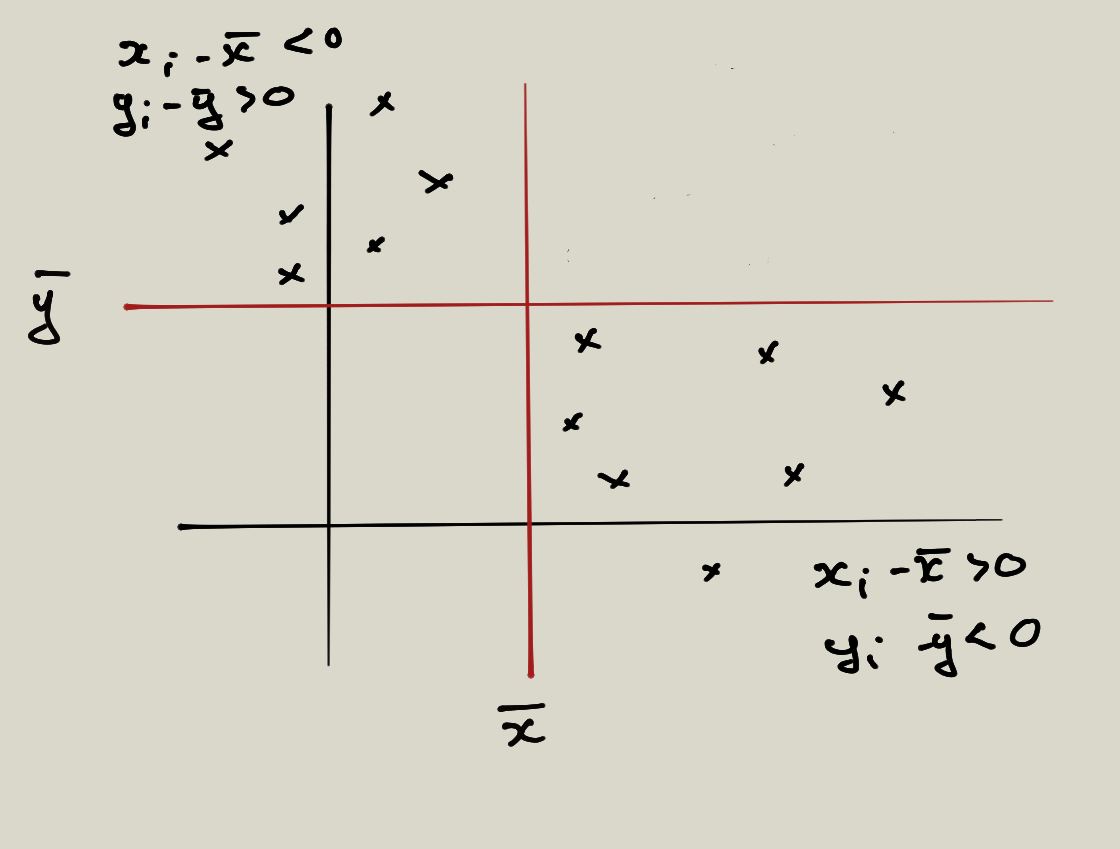 xᵢ - x̅ < 0
yᵢ - y̅ > 0
y̅
xᵢ - x̅ > 0
yᵢ - y̅ < 0
x̅